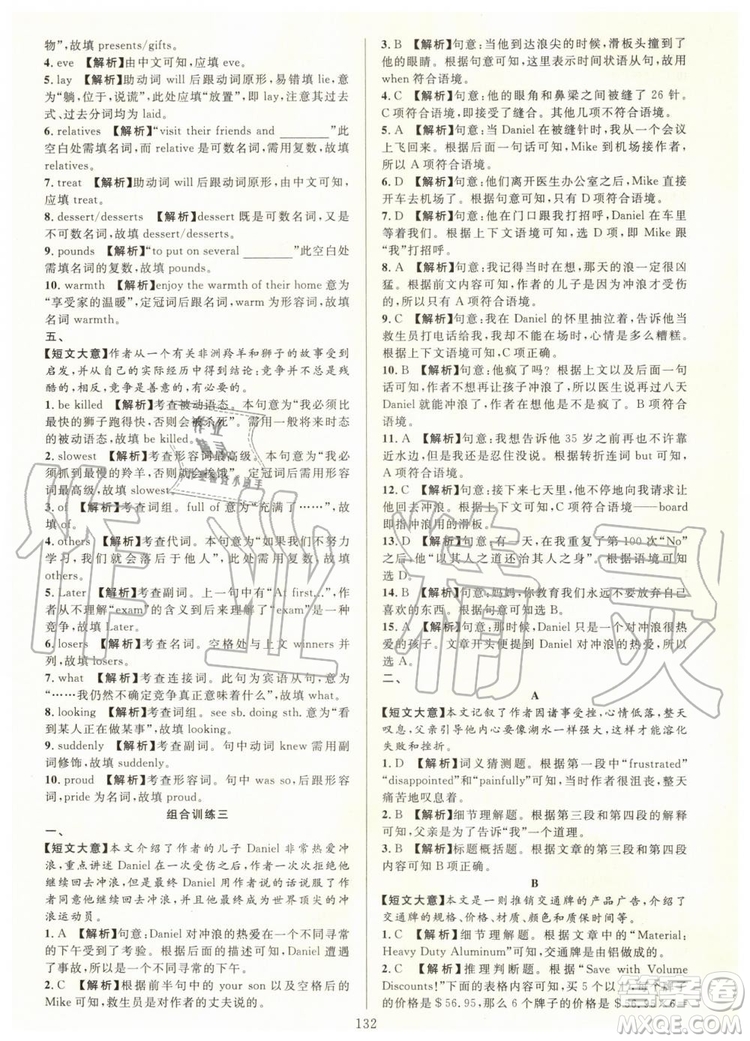 物”，故填 presents/gifts。
4. eve 【解析】由中文可知，应填 eve。
5. lay 【解析】助动词 will 后跟动词原形，易错填 lie，其意为“躺，位于，说谎”，此处应填“放置”，即 lay，其过去式、过去分词均为 laid。
6. relatives 【解析】“visit their friends and ________”此空白处需填名词，根据语境可知，需用复数，故填 relatives。
7. treat 【解析】助动词 will 后跟动词原形，由中文可知，应填 treat。
8. dessert/desserts 【解析】dessert 既是可数名词，又是不可数名词，故填 dessert/desserts。
9. pounds 【解析】“to put on several ________”此空白处需填名词的复数，故填 pounds。
10. warmth 【解析】enjoy the warmth of their home 意为“享受家的温暖”，定冠词后接名词，warm 为形容词，故填名词 warmth。
五、
【短文大意】作者从一个有关非洲羚羊和狮子的故事受到启发，并从自己的实际经历中得到结论：竞争不总是残酷的，竞争是善意的，也是有必要的。
1. be killed 【解析】考查被动语态。本句意为“我必须比最快的狮子跑得快，否则会被杀死”。此处需用一般将来时态的被动语态，故填 be killed。
2. slowest 【解析】考查形容词最高级。本句意为“我必须抓到最慢的羚羊，否则我会饿死”。定冠词后需接形容词最高级，故填 slowest。
3. of 【解析】考查词组。full of 意为“充满了……”，故填 of。
4. others 【解析】考查代词。本句意为“如果我们不努力，我们就会落后于他人”，此处需用复数，故填 others。
5. Later 【解析】考查副词。上一句中有“At first...”，从作者从不理解“exam”的含义到后来理解了“exam”是一种竞争，故填 Later。
6. losers 【解析】考查名词。空格处与上文 winners 并列，故填 losers。
7. what 【解析】考查连接词。根据空白处上下文可知“……我仍然不确定竞争真正意味着什么”，故填 what。
8. looking 【解析】考查词组。see sb. doing sth. 意为“看到某人正在做某事”，故填 looking。
9. suddenly 【解析】考查副词。句中动词 knew 需用副词修饰，故填 suddenly。
10. proud 【解析】考查形容词。句中 was so，后接形容词，pride 为名词，故填 proud。
组合训练三
一、
【短文大意】本文介绍了作者的儿子 Daniel 非常热爱冲浪，重点讲述 Daniel 在一次冲浪遇到事故后，依然想继续回去冲浪，最后 Daniel 用作者说服他的话说服了作者同意他继续回去冲浪，并最终成为世界顶尖的冲浪运动员。
1. A 【解析】句意：Daniel 对冲浪的热爱在一个不同寻常的下午受到了考验。根据后面的描述可知，Daniel 遭遇了事故，所以这是一个不同寻常的下午。
2. C 【解析】根据前半句中的 your son 以及后面提到的 Mike 可知，救生员是对作者的丈夫说的。
3. B 【解析】句意：当他到达浪尖的时候，滑板头撞到了他的眼睛。空格处应为时间状语从句，故用 when 符合语境。
4. C 【解析】句意：他的眼角和鼻梁之间被缝了 26 针。C 项符合语境。
5. A 【解析】句意：当 Daniel 在被缝针时，我正从会议上飞回来。根据后一句话可知，Mike 到机场接作者，所以 A 项符合语境。
6. D 【解析】句意：他们离开医生办公室之后，Mike 直接开车去机场了。根据语境可知，只有 D 项符合语境。
7. D 【解析】句意：他在门口跟我打招呼，Daniel 在车里等着我们。根据上下文语境可知，D 项正确，即 Mike 跟“我”打招呼。
8. A 【解析】句意：我记得当时自己在想，那天的浪一定很凶猛。根据上下文可知，作者的儿子因为冲浪受了伤，所以 A 项符合语境。
9. C 【解析】句意：我从 Daniel 的怀里抽出身来，告诉他当救生员打电话给我们时，我们的感觉是多么糟糕。根据上下文语境可知，C 项正确。
10. B 【解析】句意：他疯了吗？医生说他至少再过八天才能下水，他们不能再让孩子冲浪，所以医生如果再过八天就让 Daniel 去冲浪，作者认为他是“疯”了。B 项符合语境。
11. A 【解析】句意：我想告诉他 35 岁之前再也不许靠近水边，但是我没有。根据转折连词 but 可知，A 项正确。
12. C 【解析】句意：在接下来七天里，他不停地向我请求让他回去冲浪。根据语境可知，他请求回去的是——board 即指冲浪用的滑板。
13. D 【解析】句意：有一天，在我重复了第 100 次“No”之后，他“以其人之道还治其人之身”。根据语境可知选 D。
14. B 【解析】句意：妈妈，你教育我们永远不要放弃自己喜欢的东西。根据句意可知选 B。
15. A 【解析】句意：我看到的不仅是 Daniel 对冲浪的热爱。文章开头便提到 Daniel 对冲浪的热爱，所以选 A。
二、
A
【短文大意】本文记叙了作者因诸事受挫，心情低落，天天叹息，父亲引导他内心要像湖水一样强大，这样才能溶化失败和挫折。
1. D 【解析】词义猜测题。根据第一段中“frustrated”“disappointed”和“painfully”可知，作者心情不好，整天痛苦地叹息着。
2. C 【解析】细节理解题。根据第三段和第四段的解释可知，父亲是为了告诉他一个道理。
3. B 【解析】标题概括题。根据文章的第三段和第四段的内容可知 B 项正确。
B
【短文大意】本文是一则推销交通牌的产品广告，介绍了交通牌的规格、价格、材质、大小、颜色和寿命等。
1. C 【解析】细节理解题。根据文章中的“Material: Heavy Duty Aluminum”可知，交通牌由铝做成的。
2. C 【解析】推理判断题。根据“Save with Volume Discounts!”下面的表格内容可知，买 5 个以上，每个牌子的价格是＄56.95，那么 6 个牌子的价格是＄56.95×6＝
132
作业精灵